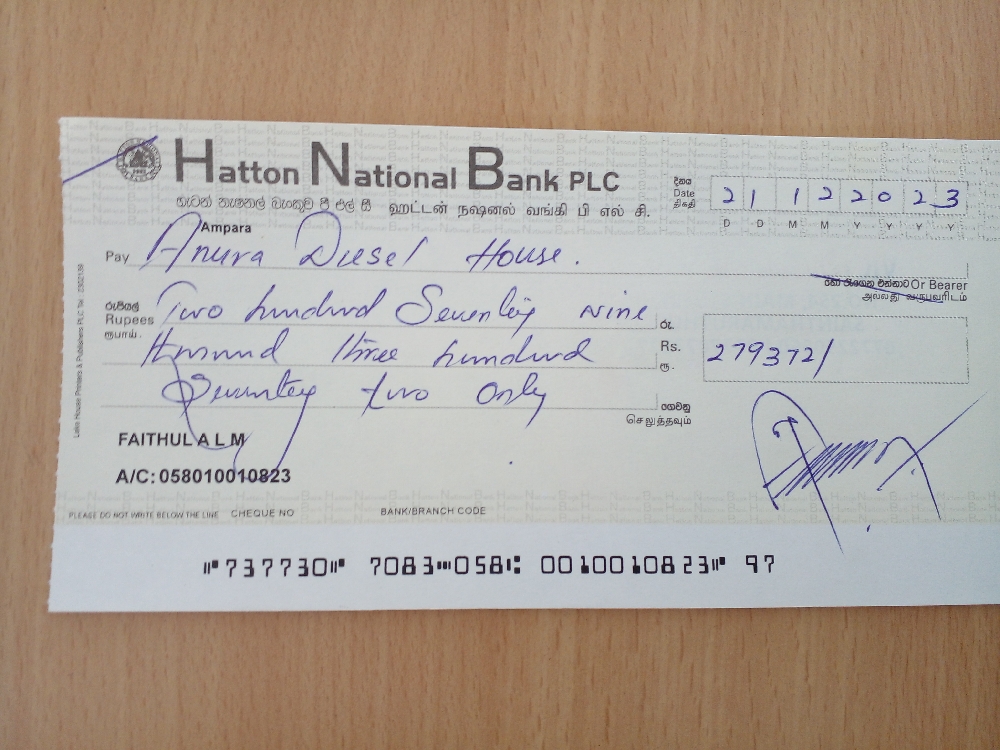 Hatton National Bank PLC
හැටන් නැෂනල් බැංකුව පී එල් සී ஹட்டன் நஷனல் வங்கி பி எல் சி.
දිනය
Date
திகதி
21 12 2023
D D M M Y Y Y Y
Ampara
Pay Anura Diesel House.
හෝ රැගෙන එන්නාට Or Bearer
அல்லது வருபவரிடம்
රුපියල්
Rupees
ரூபாய்.
Two hundred Seventey Nine
thousand three hundred
Seventey two Only
රු.
Rs.
ரூ.
279372/
ගෙවනු
செலுத்தவும்
FAITHUL A L M
A/C: 058010010823
Lake House Printers & Publishers PLC Tel : 2302139
PLEASE DO NOT WRITE BELOW THE LINE CHEQUE NO BANK/BRANCH CODE
⑈737730⑈ 7083⑉058⑆ 0010010823⑈ 97